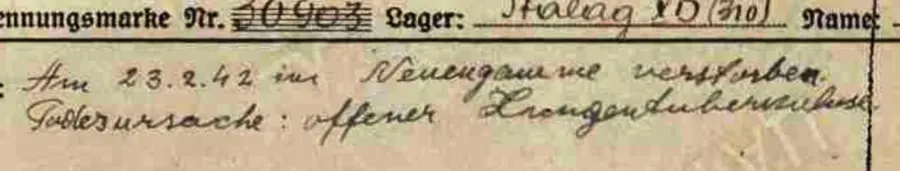 ennungsmarke Nr. 30903 Lager: Stalag XD (310) Name:
: Am 23.2.42 in Neuengamme verstorben.
Todesursache: offener Lungentuberkulose